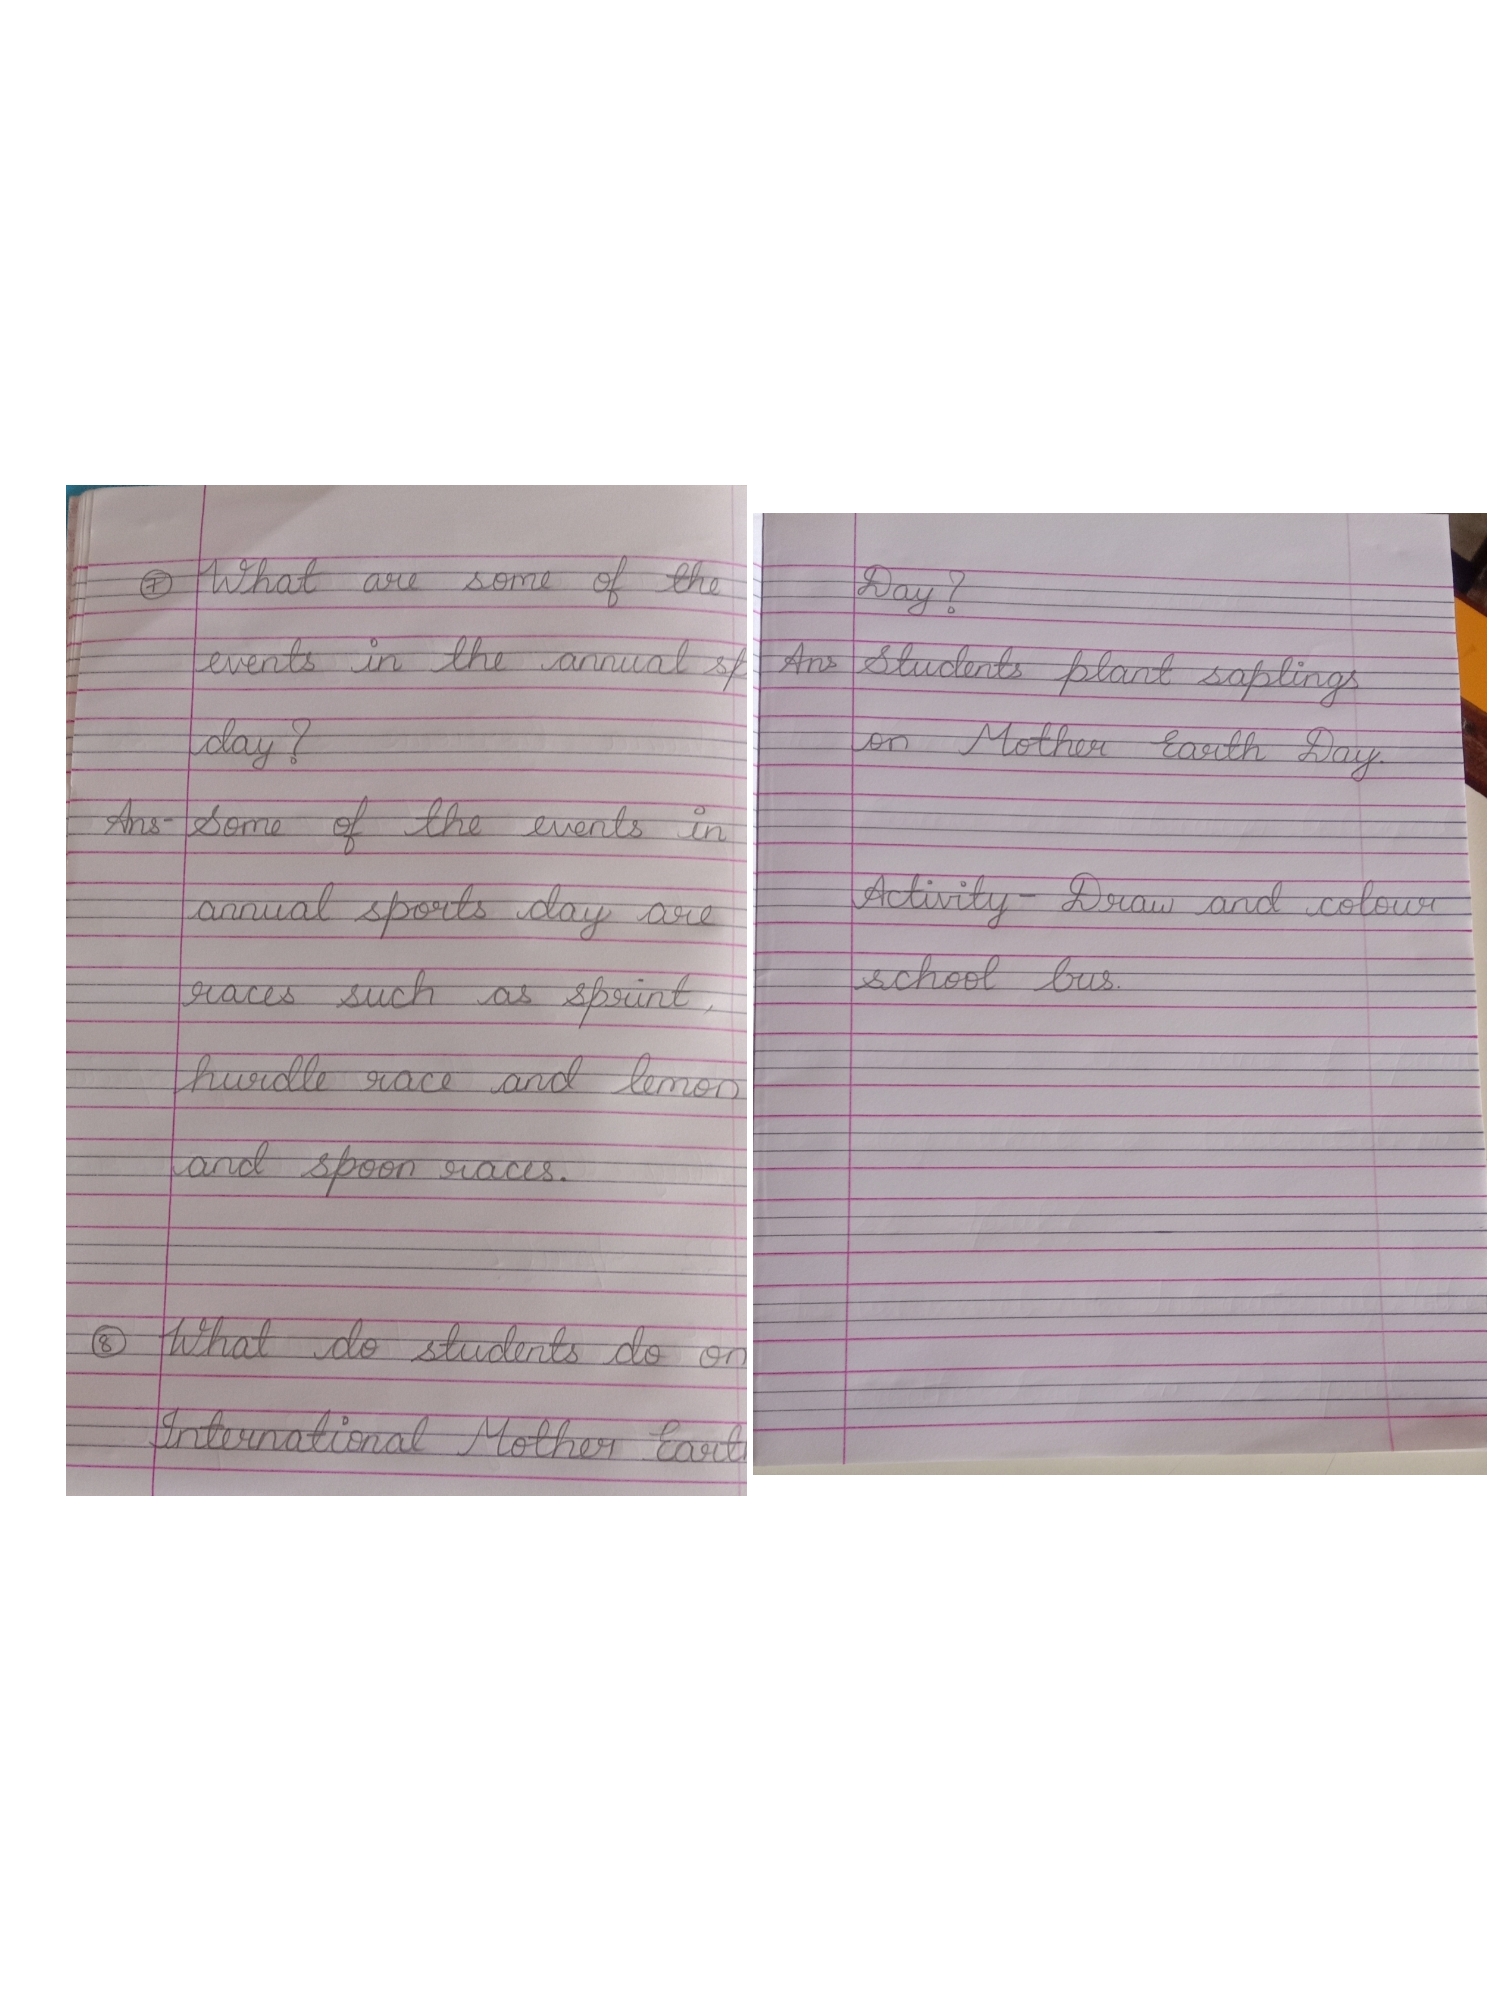 7 What are some of the
events in the annual sp
day?
Ans- Some of the events in
annual sports day are
races such as sprint,
hurdle race and lemon
and spoon races.
8 What do students do on
International Mother Eart
Day?
Ans Students plant saplings
on Mother Earth Day.
Activity- Draw and colour
school bus.